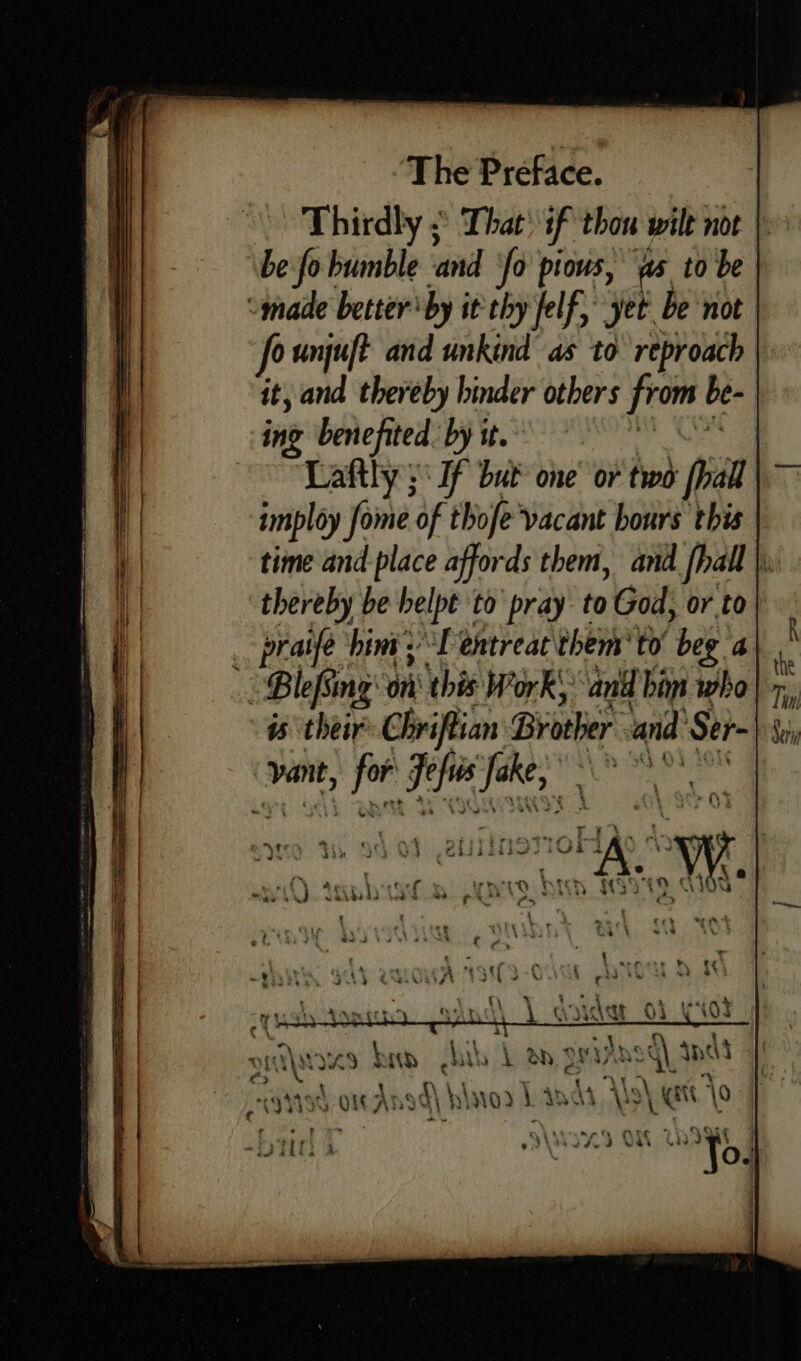 The Preface.
Thirdly; That if thou wilt not
be ſo humble and ſo pious, as to be
made better by it thy ſelf, yet be not
ſo unjuſt and unkind as to reproach
it, and thereby hinder others from be-
ing benefited by it.
Laſtly; If but one or two ſhall
imploy ſome of thoſe vacant hours this
time and place affords them, and ſhall
thereby be helpt to pray to God, or to
praiſe him; I entreat them to beg a
Bleſſing on this Work, and him who
is their Chriſtian Brother and Ser-
vant, for Jeſus ſake,
A. W.
To.
the